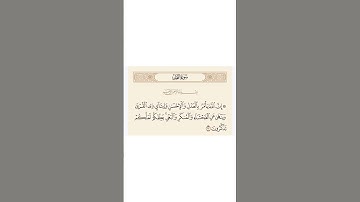 سورة النحل
۞ إن الله يأمر بالعدل والإحسن وإيتاي ذي القربى
وينهى عن الفحشاء والمنكر والبغي يعظكم لعلكم
تذكرون